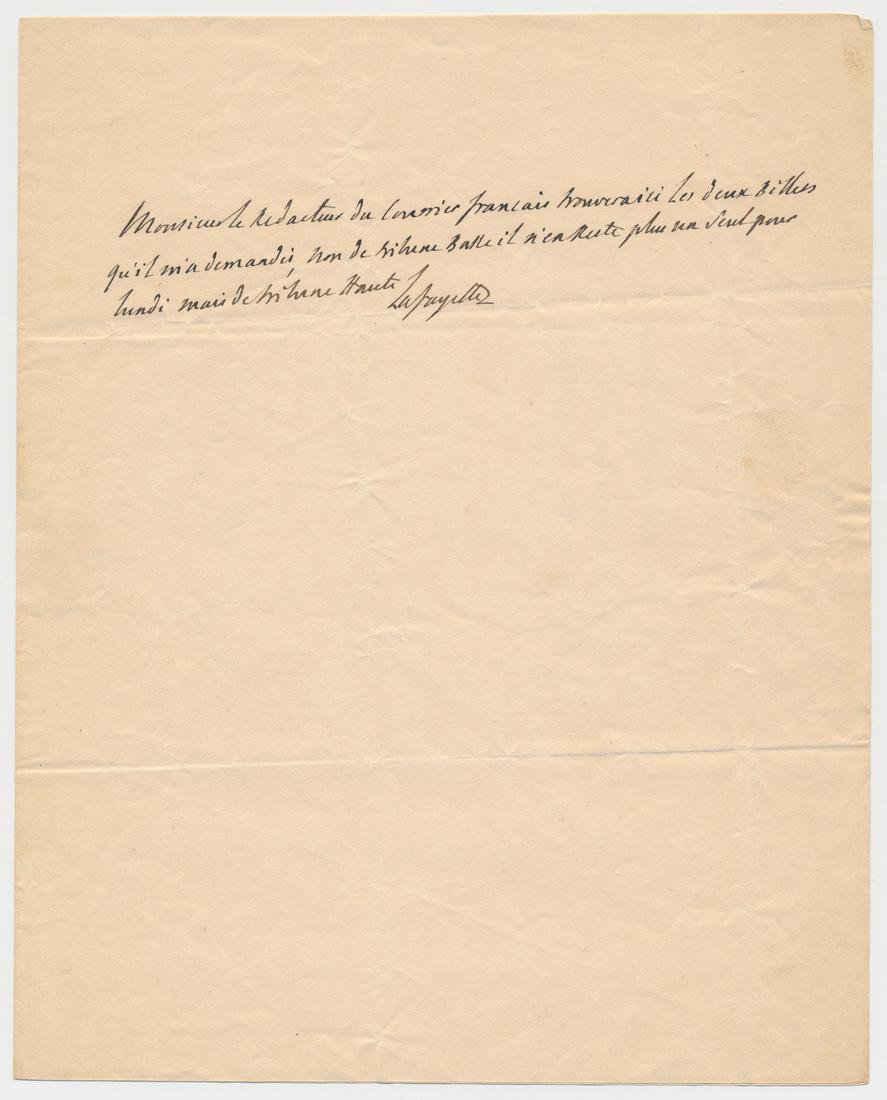 Monsieur le Redacteur du Courrier francais trouvera ici Les deux Billets
qu'il m'a demandés, non de tribune Basse il n'en Reste plus un Seul pour
lundi mais de tribune Haute
Lafayette